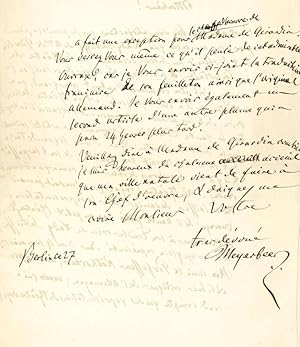 le chef d'oeuvre de
a fait une exception pour Madame de Girardin.
Vous verrez Vous même ce qu'il parle de cet admirable
ouvrage, car je Vous envoie ci-joint la traduction
française de son feuilleton ainsi que l'original
allemand. Je Vous envoie également un
second article d'une autre plume qui a
paru 24 heures plus tard.
Veuillez dire à Madame de Girardin combien
je suis heureux du chaleureux accueil
que ma ville natale vient de faire à
son Chef d'oeuvre, & daignez me
croire Monsieur
Votre
très dévoué
Meyerbeer
Berlin ce 27